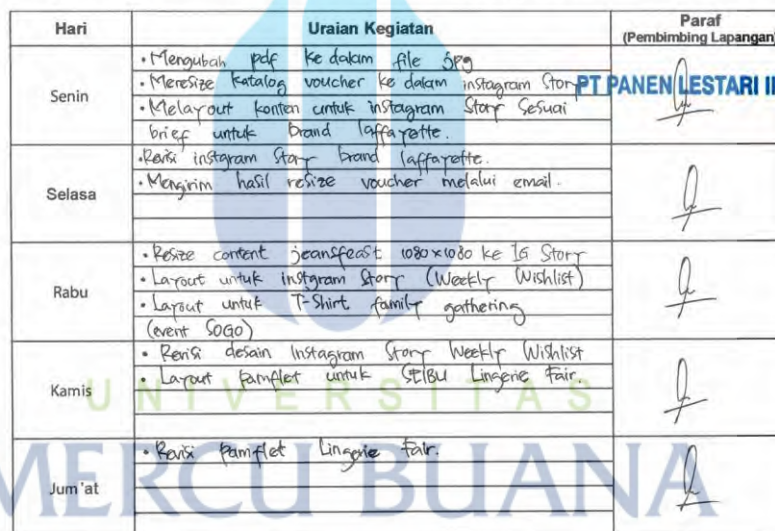 Hari Uraian Kegiatan Paraf
(Pembimbing Lapangan)
Senin
• Mengubah pdf ke dalam file jpg
• Meresize katalog voucher ke dalam instagram Story
PT PANEN LESTARI I
• Melayout konten untuk instagram Story Sesuai
brief untuk brand laffayette.
Selasa
• Revisi instgram Story brand laffayette.
• Mengirim hasil resize voucher melalui email.
Rabu
• Resize content jeansfeast 1080x1080 ke IG Story
• Layout untuk instgram Story (Weekly Wishlist)
• Layout untuk T-Shirt family gathering
(event SOGO)
Kamis
• Revisi desain Instagram Story Weekly Wishlist
• Layout pamflet untuk SEIBU Lingerie Fair
UNIVERSITAS
Jum'at
• Revisi pamflet Lingerie Fair.
MERCU BUANA